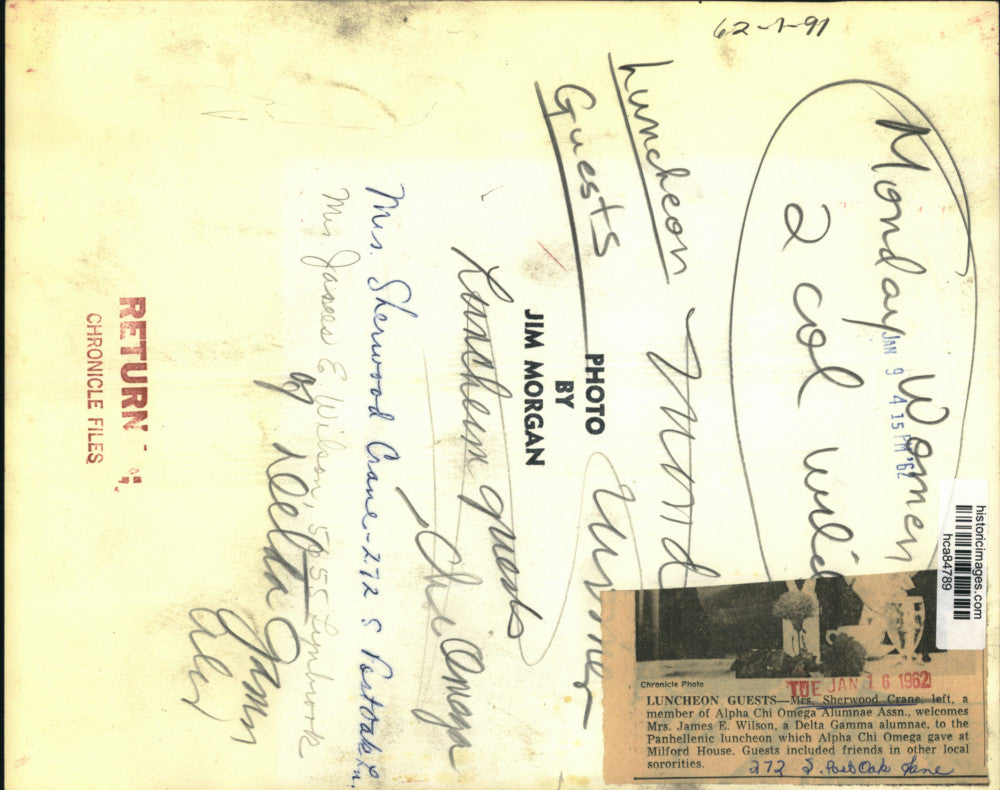 62-1-91
Monday Women
2 col wide
JAN 9 4 15 PM '62
Luncheon
Guests
PHOTO
BY
JIM MORGAN
Luncheon guests
Chi Omega
Mrs. Sherwood Crane - 272 S Postoak Ln.
Mrs James E Wilson, 5055 Lynbrook
of Delta Gamma
RETURN
CHRONICLE FILES
historicimages.com
hca84789
Chronicle Photo
TUE JAN 16 1962
LUNCHEON GUESTS—Mrs. Sherwood Crane, left, a
member of Alpha Chi Omega Alumnae Assn., welcomes
Mrs. James E. Wilson, a Delta Gamma alumnae, to the
Panhellenic luncheon which Alpha Chi Omega gave at
Milford House. Guests included friends in other local
sororities.
272 S. Post Oak Lane